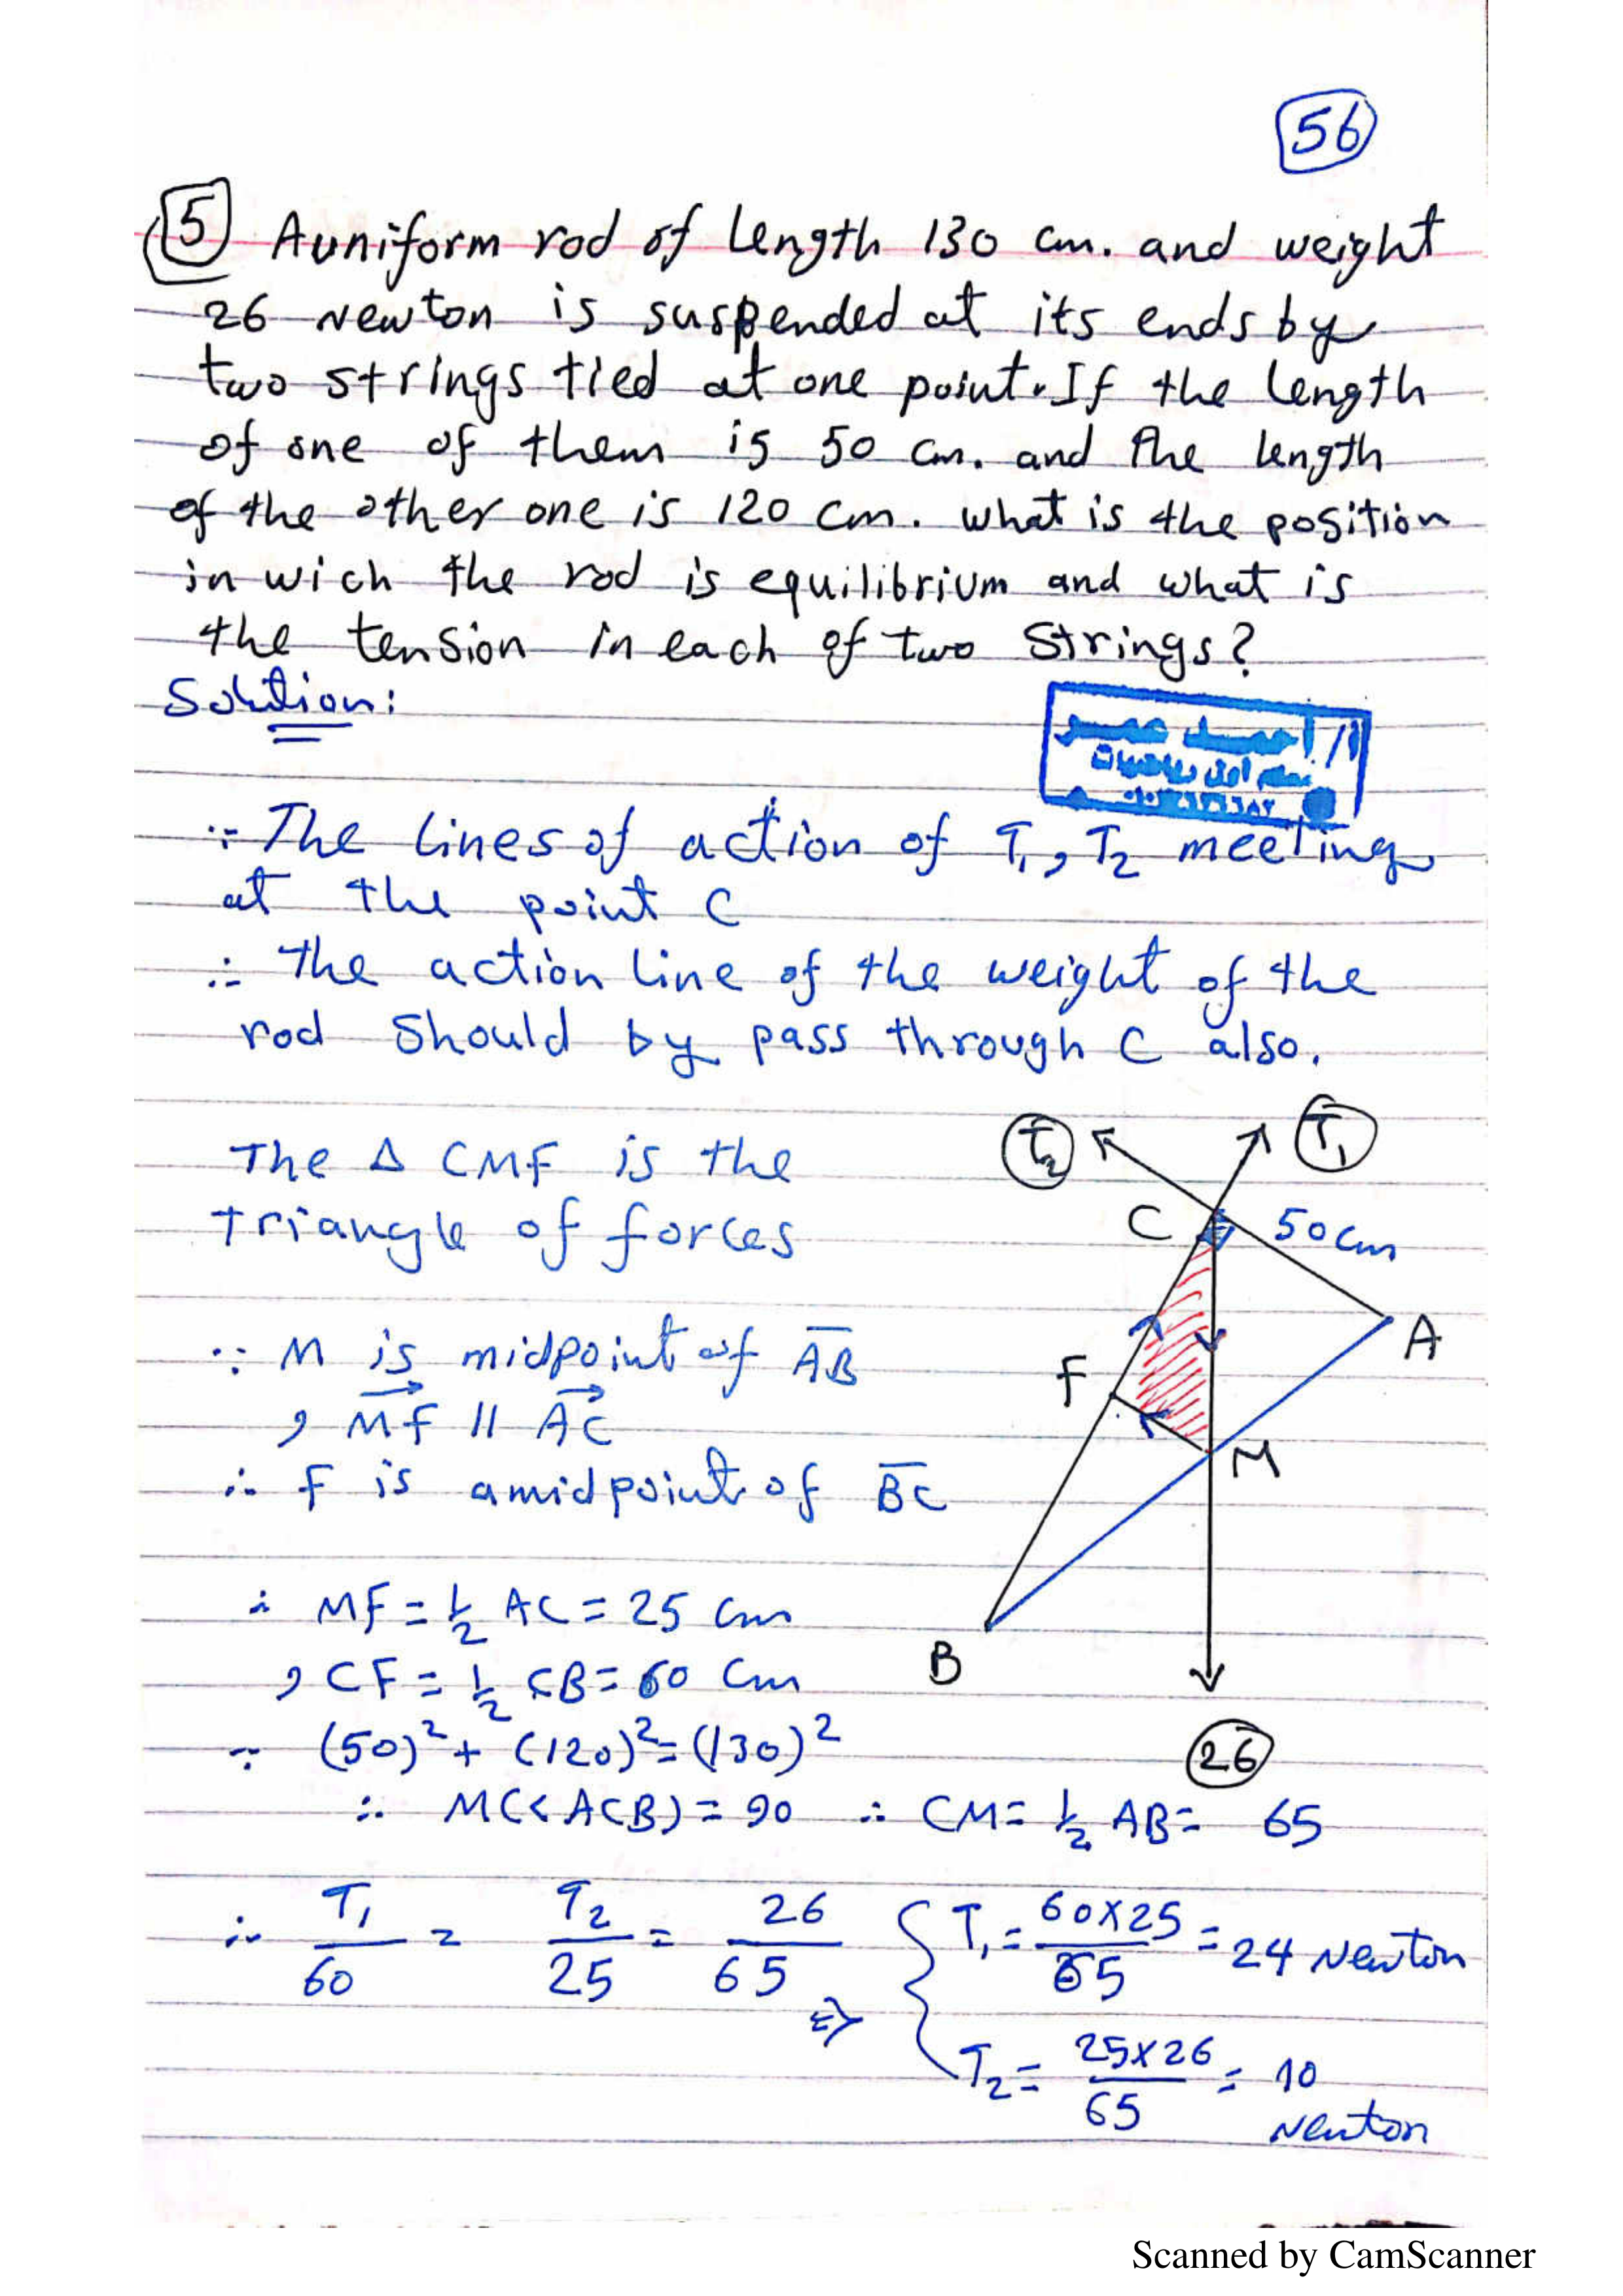 56
5 A uniform rod of length 130 cm. and weight
26 Newton is suspended at its ends by
two strings tied at one point. If the length
of one of them is 50 cm. and the length
of the other one is 120 cm. what is the position
in wich the rod is equilibrium and what is
the tension in each of two strings?
Solution:
أ/ أحمد عمر
معلم أول رياضيات
∵ The lines of action of T₁, T₂ meeting
at the point C
∴ The action line of the weight of the
rod should by pass through C also.
The Δ CMF is the
triangle of forces
∵ M is midpoint of AB
, MF // AC
∴ F is a midpoint of BC
∴ MF = ½ AC = 25 cm
, CF = ½ CB = 60 cm
∵ (50)² + (120)² = (130)²
∴ M(<ACB) = 90 ∴ CM = ½ AB = 65
∴ T₁/60 = T₂/25 = 26/65 ⇒ { T₁ = 60×25/65 = 24 Newton
T₂ = 25×26/65 = 10
Newton
T₂ T₁
C 50cm
A
F
M
B
26
Scanned by CamScanner